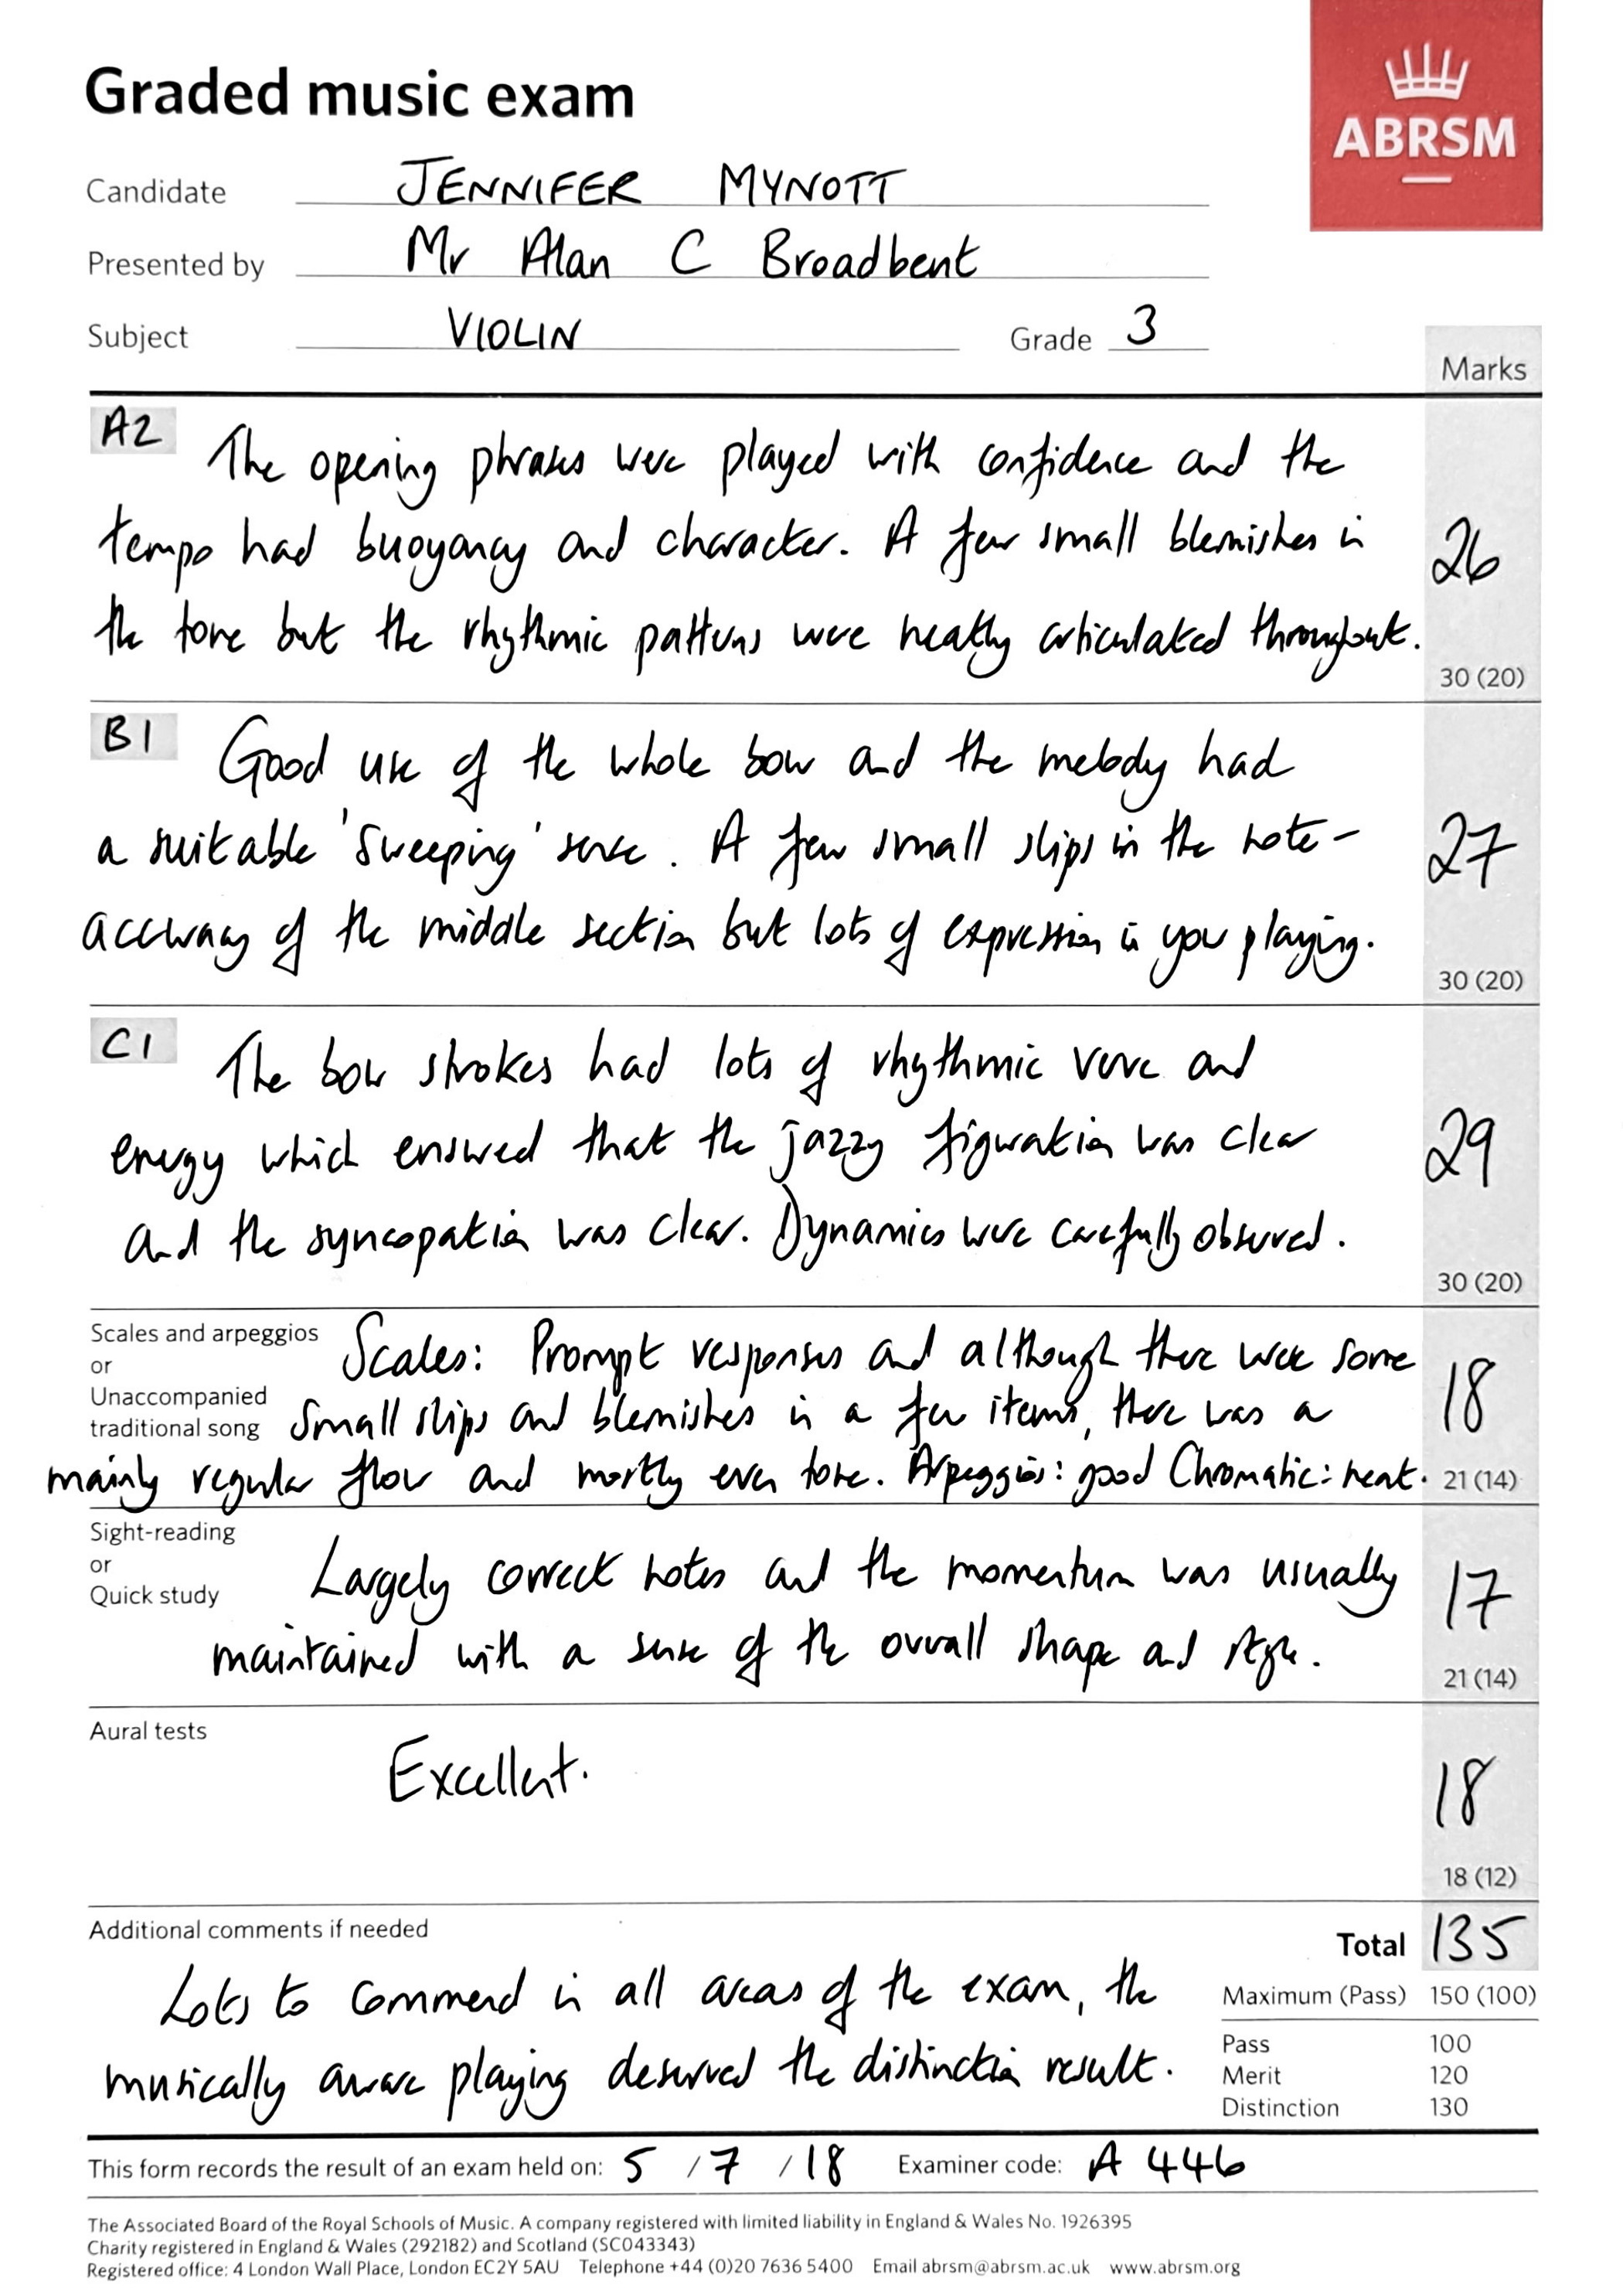 Graded music exam
ABRSM
Candidate JENNIFER MYNOTT
Presented by Mr Alan C Broadbent
Subject VIOLIN Grade 3
Marks
A2 The opening phrases were played with confidence and the
tempo had buoyancy and character. A few small blemishes in
the tone but the rhythmic patterns were neatly articulated throughout.
26
30 (20)
B1 Good use of the whole bow and the melody had
a suitable 'sweeping' sense. A few small slips in the note-
accuracy of the middle section but lots of expression in your playing.
27
30 (20)
C1 The bow strokes had lots of rhythmic verve and
energy which ensured that the jazzy figuration was clear
and the syncopation was clear. Dynamics were carefully observed.
29
30 (20)
Scales and arpeggios
or
Unaccompanied
traditional song
Scales: Prompt responses and although there were some
small slips and blemishes in a few items, there was a
mainly regular flow and mostly even tone. Arpeggios: good Chromatic: neat.
18
21 (14)
Sight-reading
or
Quick study
Largely correct notes and the momentum was usually
maintained with a sense of the overall shape and style.
17
21 (14)
Aural tests
Excellent.
18
18 (12)
Additional comments if needed
Lots to commend in all areas of the exam, the
musically aware playing deserved the distinction result.
Total 135
Maximum (Pass) 150 (100)
Pass 100
Merit 120
Distinction 130
This form records the result of an exam held on: 5 / 7 / 18 Examiner code: A 446
The Associated Board of the Royal Schools of Music. A company registered with limited liability in England & Wales No. 1926395
Charity registered in England & Wales (292182) and Scotland (SC043343)
Registered office: 4 London Wall Place, London EC2Y 5AU Telephone +44 (0)20 7636 5400 Email abrsm@abrsm.ac.uk www.abrsm.org